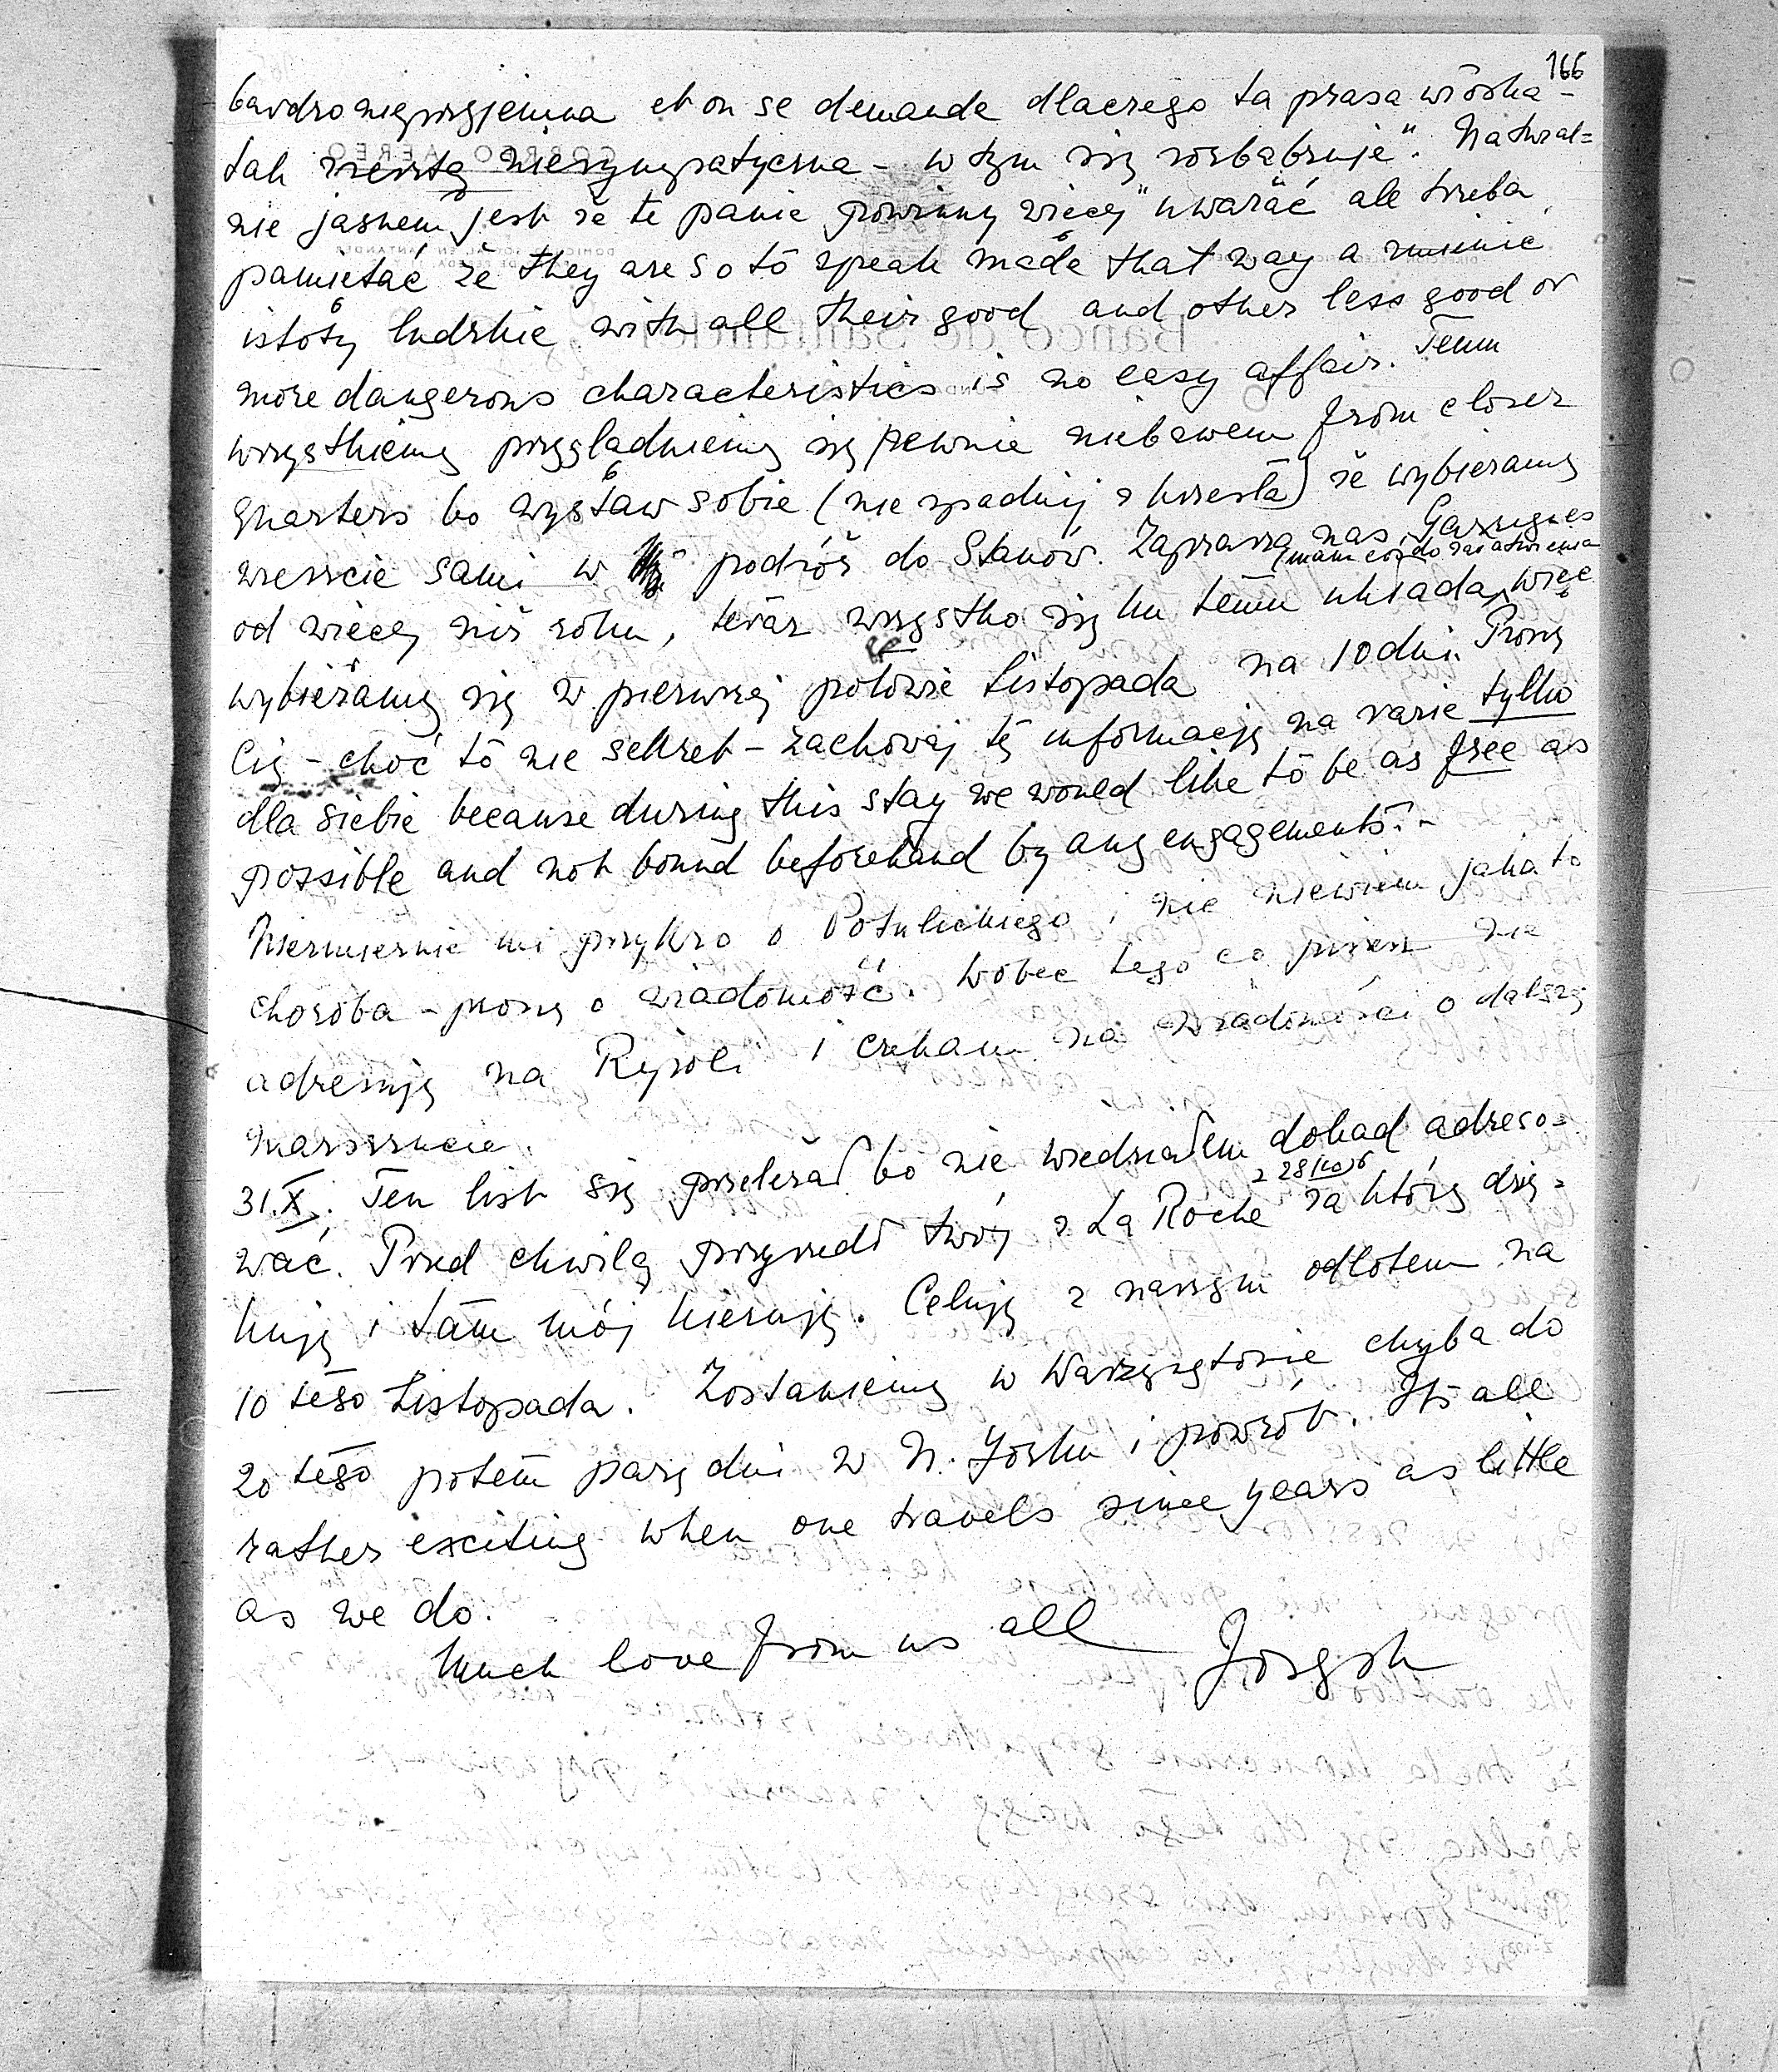 166
bardzo nieprzyjemna et on se demande dlaczego ta prasa włoska –
tak zresztą niesympatyczna – w tym się rozbabruje". Natural=
nie jasnem jest że te panie powinny więcej "uważać" ale trzeba
pamiętać że they are so to speak made that way a
istoty ludzkie with all their good and other less good or
more dangerous characteristics is no easy affair. Temu
wszystkiemu przyglądniemy się pewnie niebawem from closer
quarters bo wystaw sobie (nie spadnij z krzesła) że wybieramy
wreszcie sami w podróż do Stanów. Zaprasza nas Garrigues
(mam coś do załatwienia
od więcej niż roku, teraz wszystko się ku temu układa, więc
wybieramy się w pierwszej połowie Listopada na 10 dni. Proszę
Cię – choć to nie sekret – zachowaj tę informację na razie tylko
dla siebie because during this stay we would like to be as free as
possible and not bound beforehand by any engagements. –
Niezmiernie mi przykro o Potulickiego i nic niewiem jaka to
choroba – proszę o wiadomość. Wobec tego co piszesz nie
adresuję na Ripoli i czekam na wiadomości o dalszej
marszrucie.
31.X. Ten list się przeleżał bo nie wiedziałem dokąd adreso=
z 28
wać. Przed chwilą przyszedł twój z La Roche za który dzię=
kuję i tam mój kieruję. Celuję z naszym odlotem na
10 tego Listopada. Zostaniemy w Waszyngtonie chyba do
20 tego potem parę dni w N. Yorku i powrót. Its all
rather exciting when one travels since years as little
as we do.
Much love from us all Józef